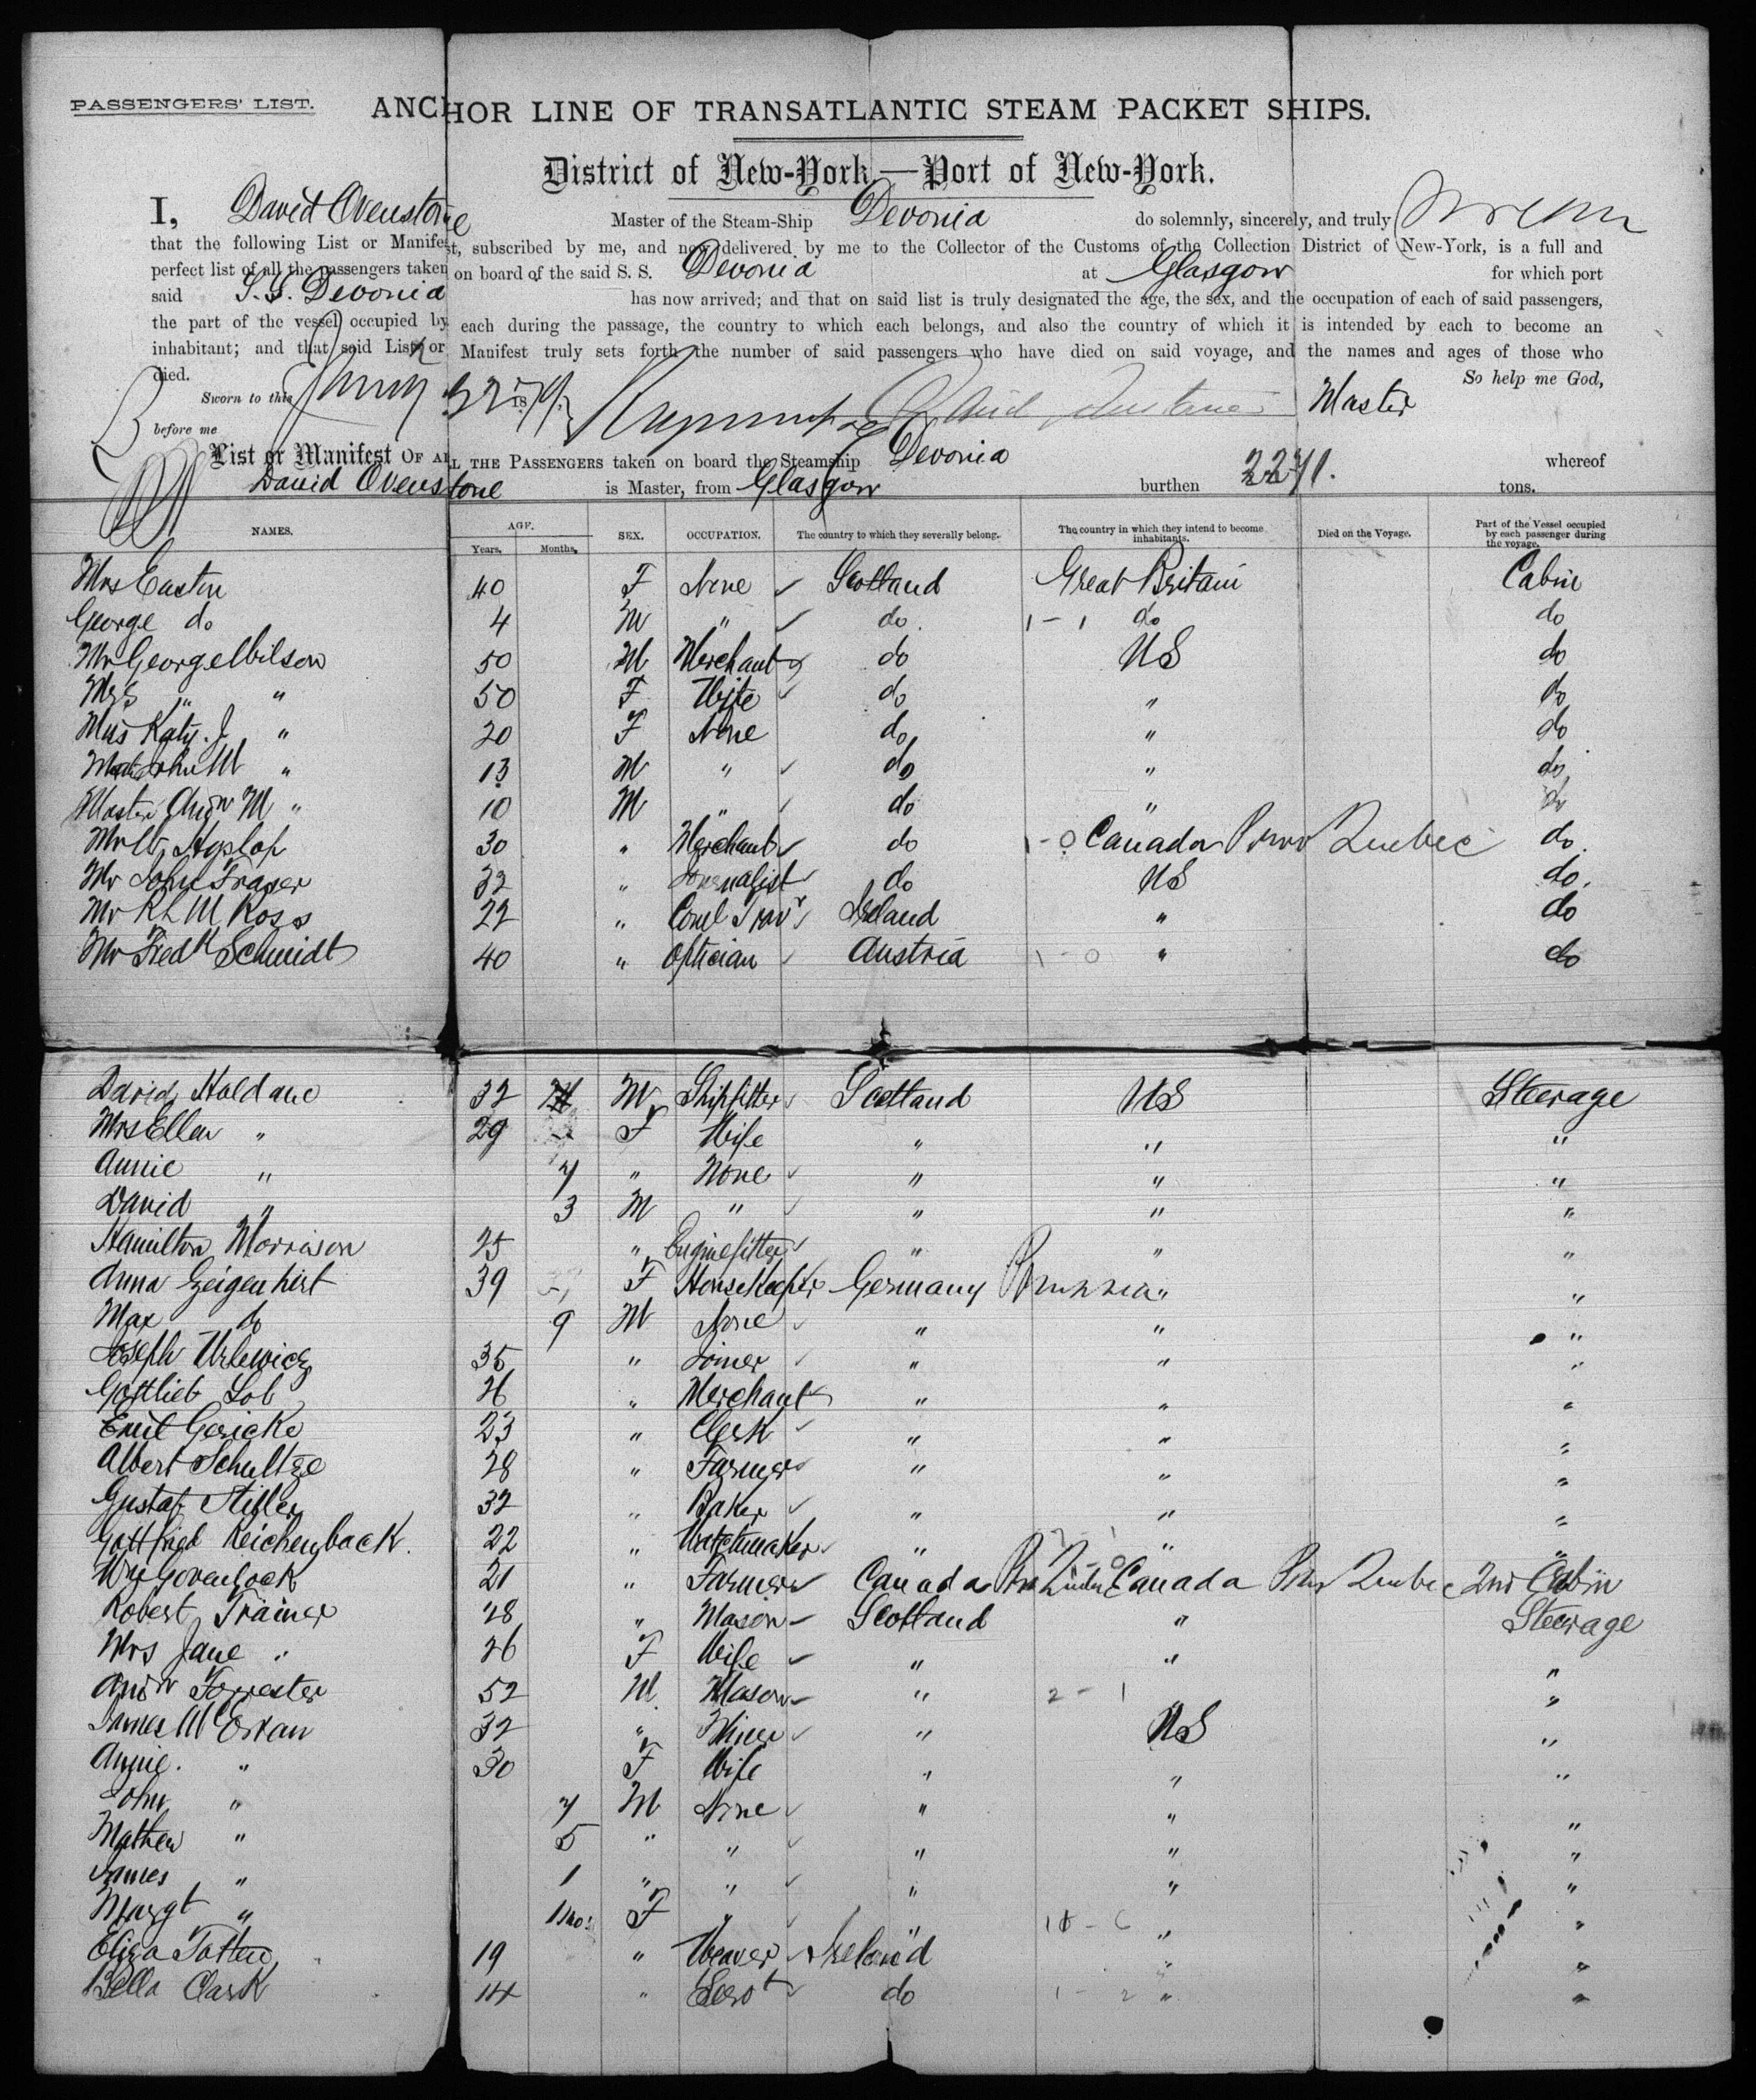 PASSENGERS' LIST.
ANCHOR LINE OF TRANSATLANTIC STEAM PACKET SHIPS.
District of New-York,—Port of New-York.
I, David Ovenstone Master of the Steam-Ship Devonia do solemnly, sincerely, and truly swear
that the following List or Manifest, subscribed by me, and now delivered by me to the Collector of the Customs of the Collection District of New-York, is a full and
perfect list of all the passengers taken on board of the said S. S. Devonia at Glasgow for which port
said S.S. Devonia has now arrived; and that on said list is truly designated the age, the sex, and the occupation of each of said passengers,
the part of the vessel occupied by each during the passage, the country to which each belongs, and also the country of which it is intended by each to become an
inhabitant; and that said List or Manifest truly sets forth the number of said passengers who have died on said voyage, and the names and ages of those who
died. So help me God,
Sworn to this 18 79 David Ovenstone Master
before me
List or Manifest OF ALL THE PASSENGERS taken on board the Steamship Devonia whereof
David Ovenstone is Master, from Glasgow burthen 2271. tons.
NAMES. AGE. Years. Months. SEX. OCCUPATION. The country to which they severally belong. The country in which they intend to become inhabitants. Died on the Voyage. Part of the Vessel occupied by each passenger during the voyage.
Mrs Easton 40 F None Scotland Great Britain Cabin
George do 4 M " do 1 - 1 do do
Mr George Wilson 50 M Merchant do US do
Mrs " " 50 F Wife do " do
Miss Katy. J " 20 F None do " do
Mast John M " 13 M " do " do
Master Andw M " 10 M " do " do
Mr W. Hyslop 30 " Merchant do 1-0 Canada Prov Quebec do
Mr John Fraser 32 " Journalist do US do.
Mr Rt M Ross 22 " Coml Travr Ireland " do
Mr Fredk Schmidt 40 " Optician Austria 1 - 0 " do
David Haldane 32 M Shipfitter Scotland US Steerage
Mrs Ellen " 29 F Wife " " "
Annie " 7 " None " " "
David " 3 M " " " "
Hamilton Morrison 25 " Enginefitter " " "
Anna Geigenhirt 39 F HouseKeeper Germany Prussia " "
Max do 9 M None " " "
Joseph Urlewicz 35 " Joiner " " "
Gottlieb Lob 26 " Merchant " " "
Emil Gericke 23 " Clerk " " "
Albert Schultze 28 " Farmer " " "
Gustaf Stiller 32 " Baker " " "
Gottfried Reichenback. 22 " Watchmaker " " "
Wm Govenlock 21 " Farmer Canada Pro Quebec Canada Prov Quebec 2nd Cabin
Robert Trainer 28 " Mason Scotland " Steerage
Mrs Jane " 26 F Wife " " "
Andw Forrester 52 M Mason " 2 - 1 "
James McEwan 32 " Miner " US "
Annie. " 30 F Wife " " "
John " 7 M None " " "
Mathew " 5 " " " " "
James " 1 " " " " "
Margt " 11mo: F " " " "
Eliza Totten 19 " Weaver Ireland " "
Bella Clark 14 " Servt do 1 - 2 " "